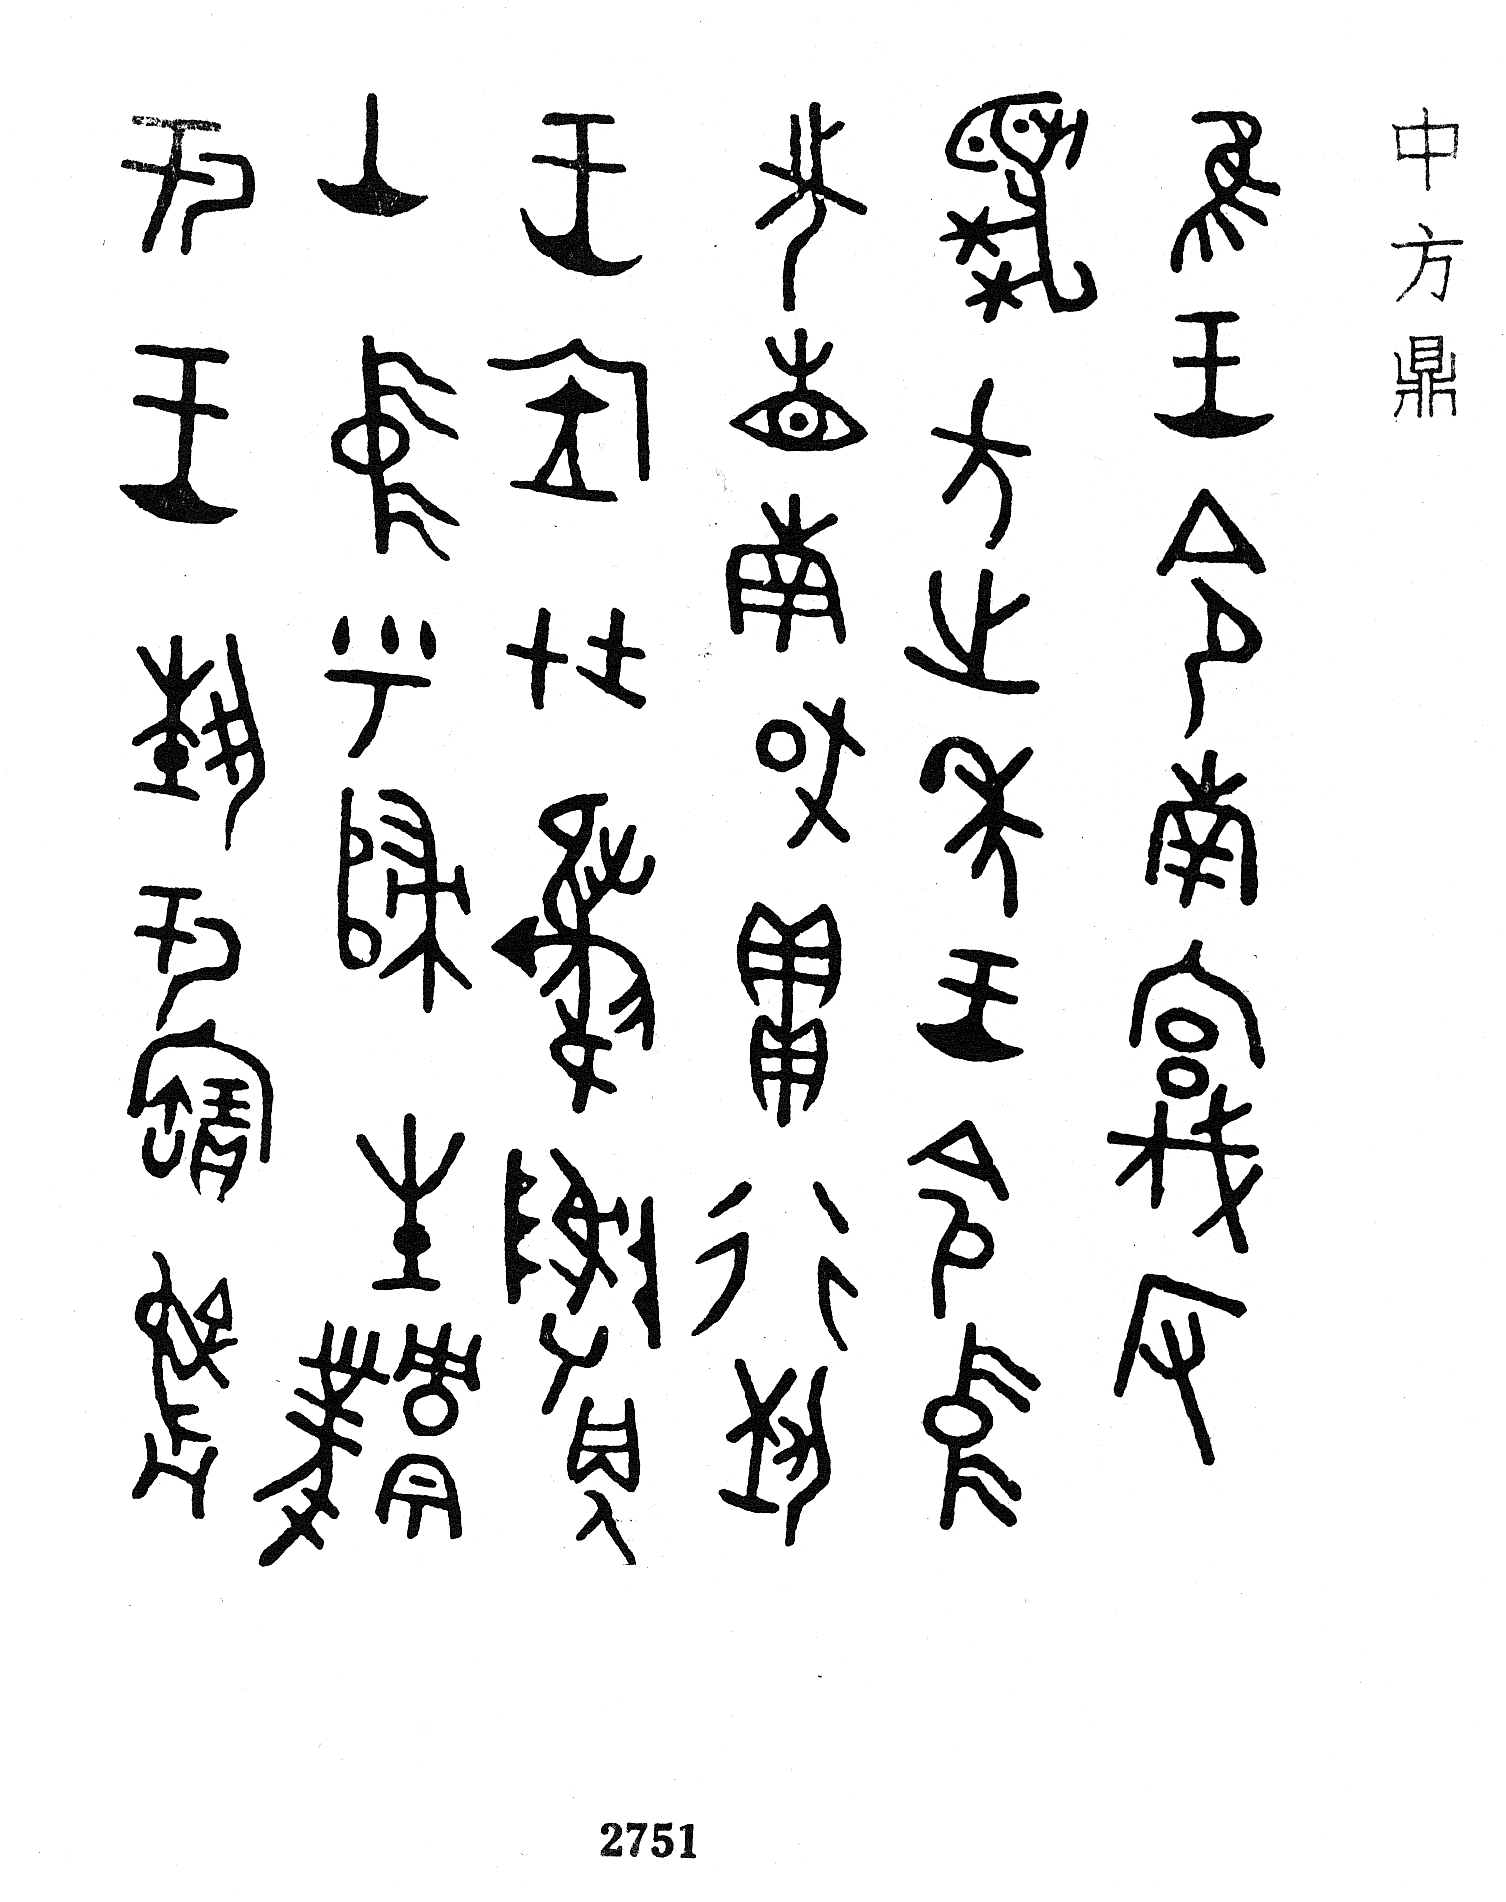 中方鼎
隹王令南宮伐反
虎方之年王令中
先省南或貫行埶
王㕇在夔真
山中乎歸生鳳
于王埶于寶彝
2751